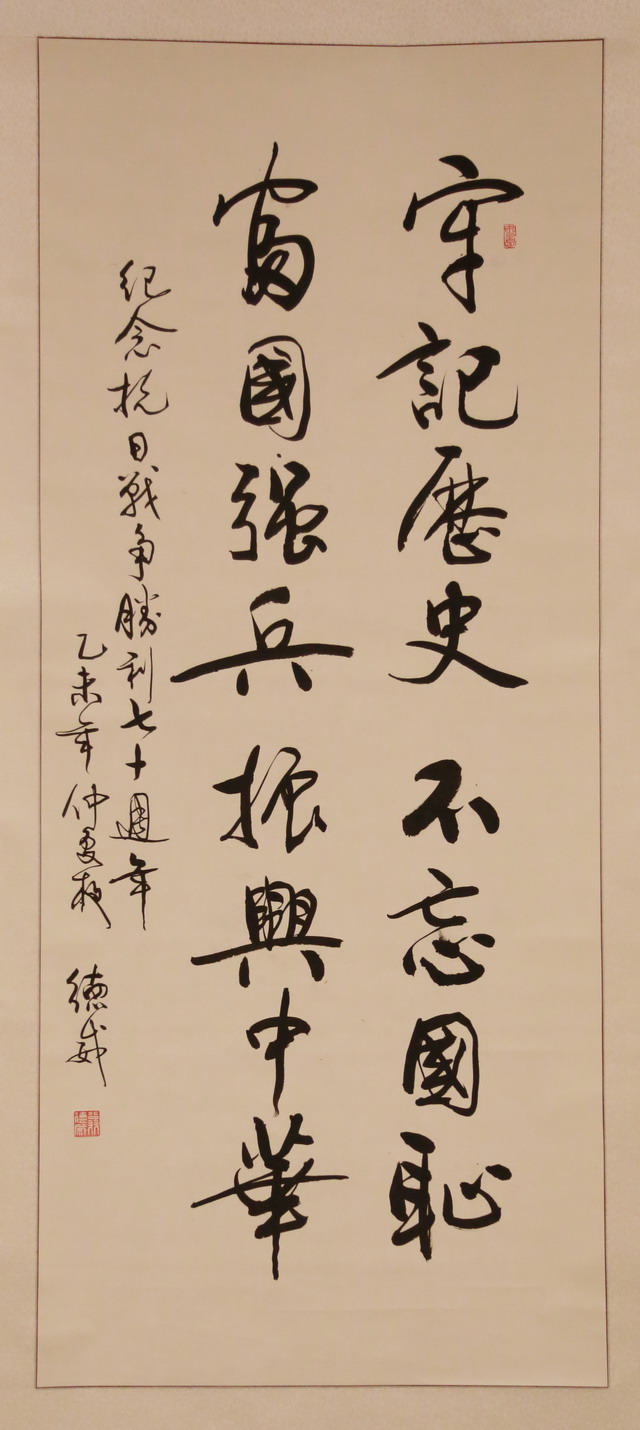 牢記歷史不忘國恥
富國强兵振興中華
紀念抗日戰爭勝利七十週年
乙未年仲夏敬
德威